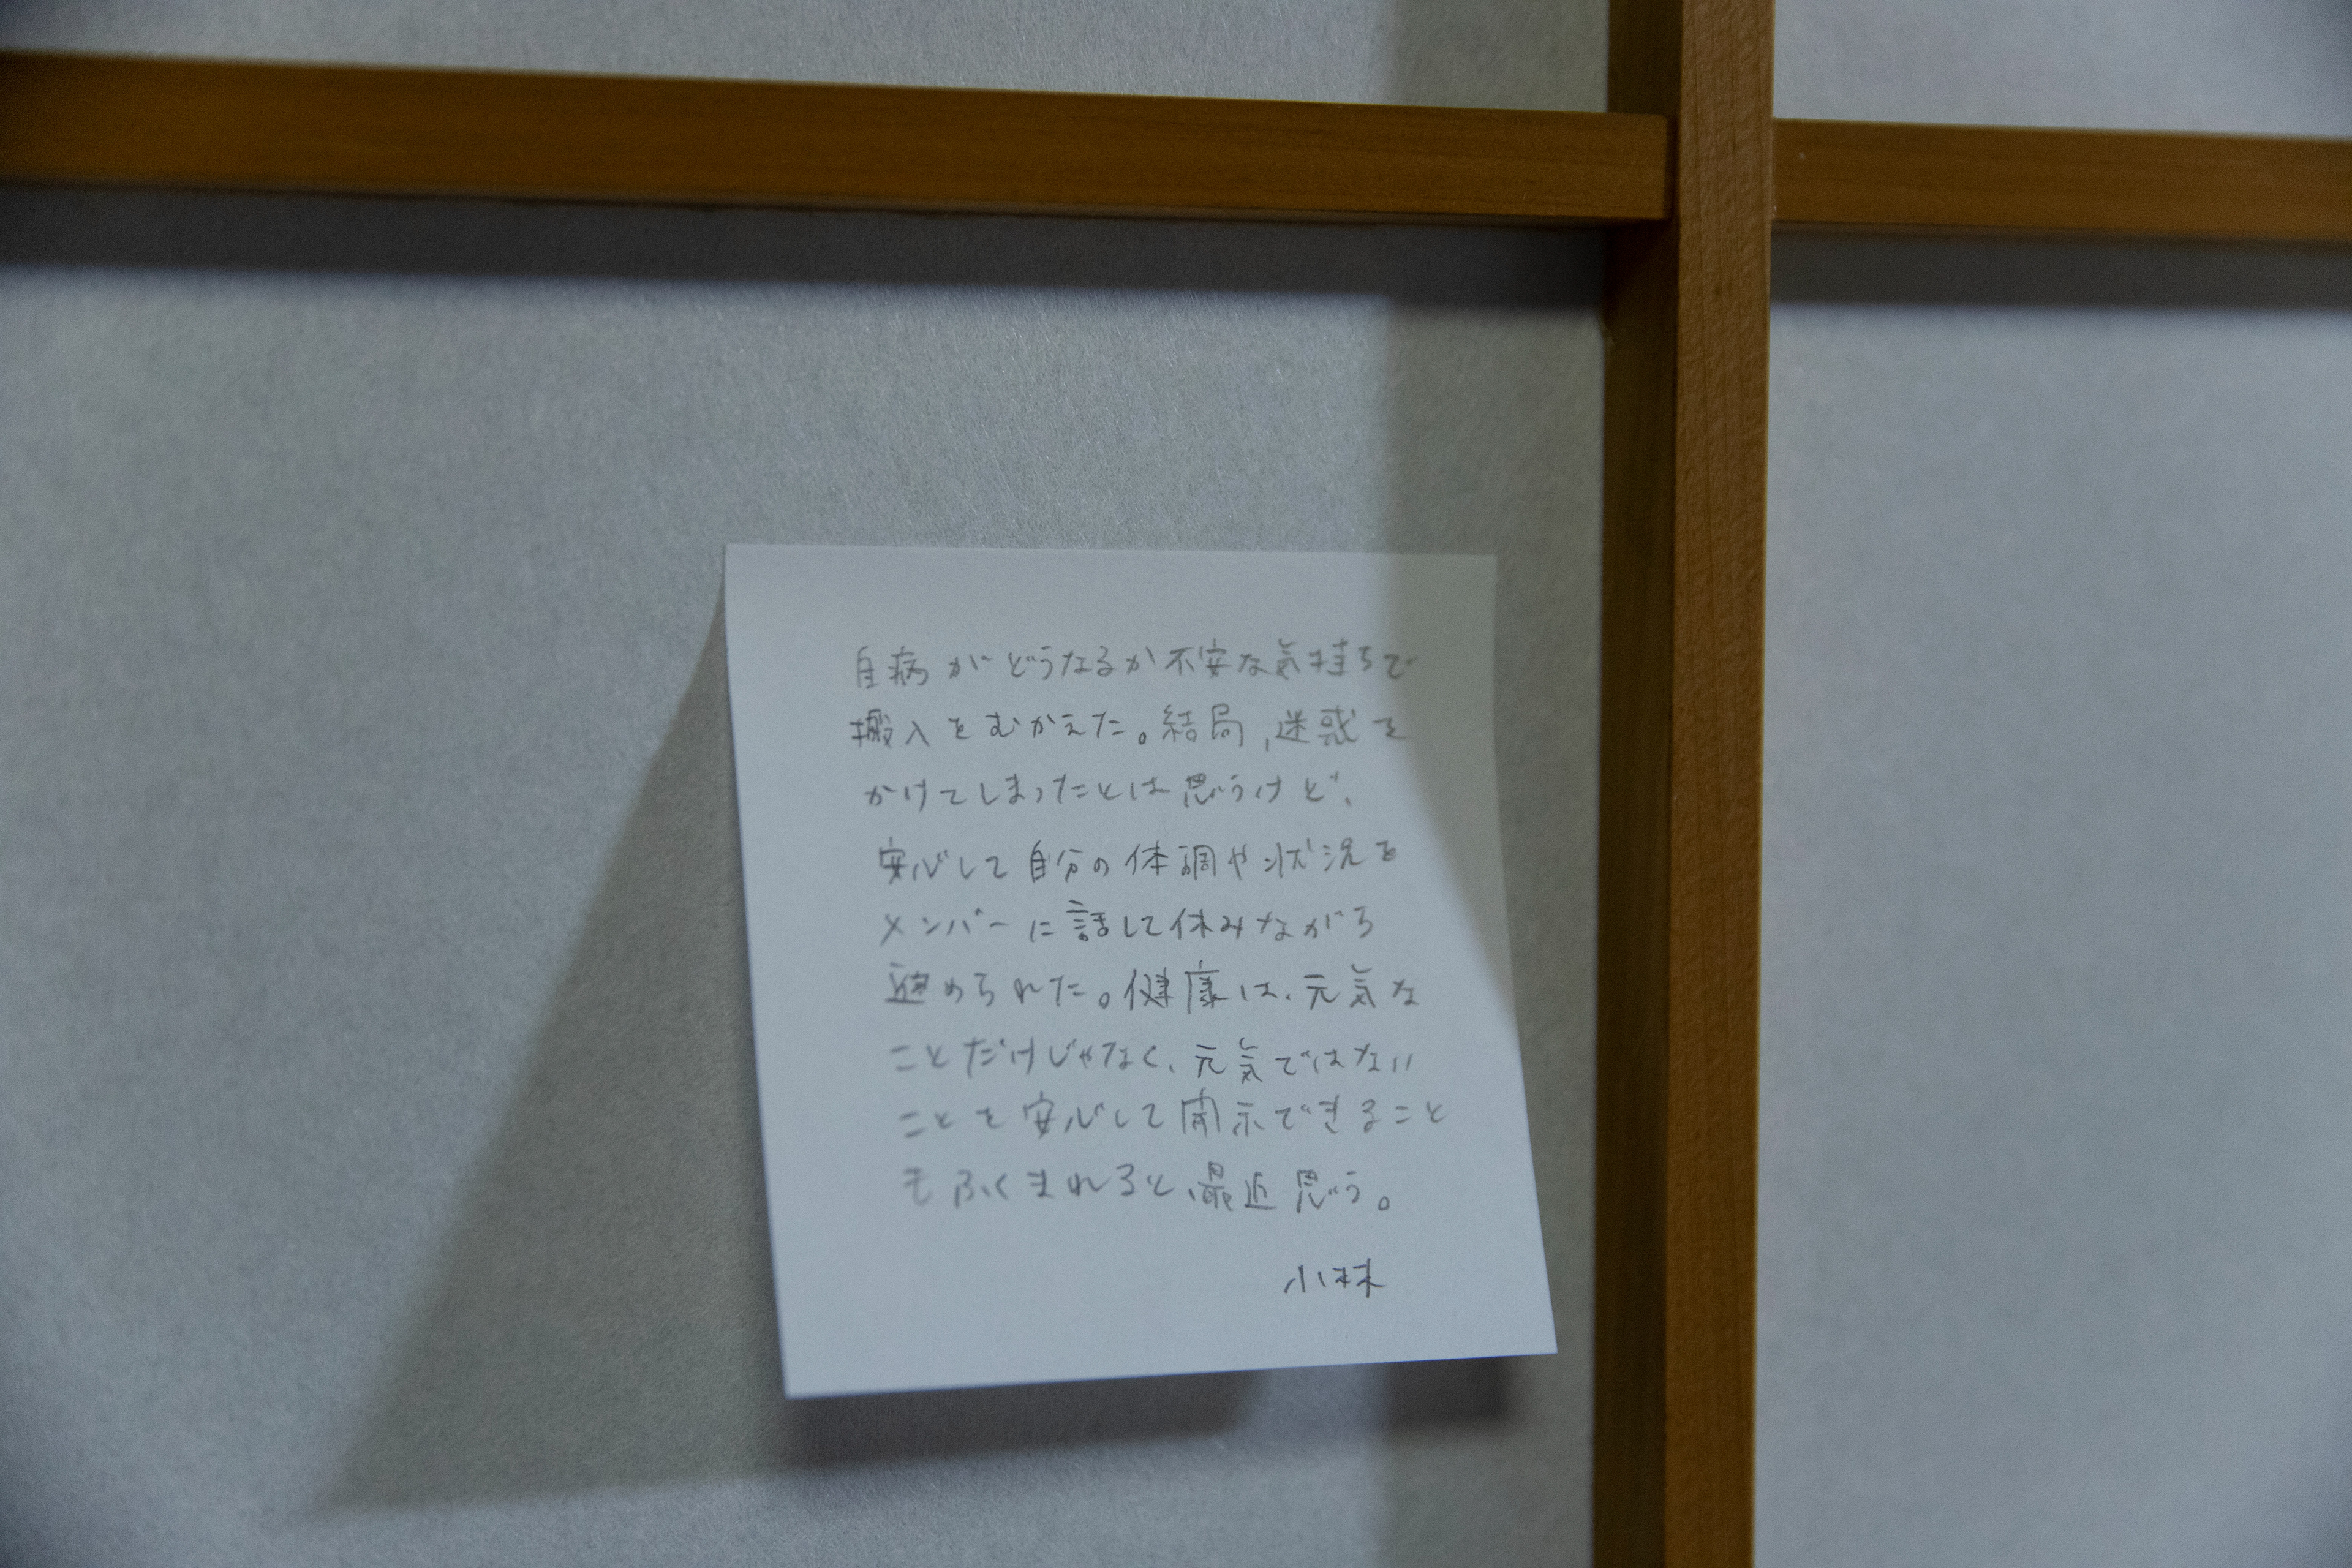 自病がどうなるか不安な気持ちで
搬入をむかえた。結局、迷惑を
かけてしまったとは思うけど、
安心して自分の体調や状況を
メンバーに話して休みながら
進められた。健康は、元気な
ことだけじゃなく、元気ではない
ことを安心して開示できること
もふくまれると、最近思う。
小林